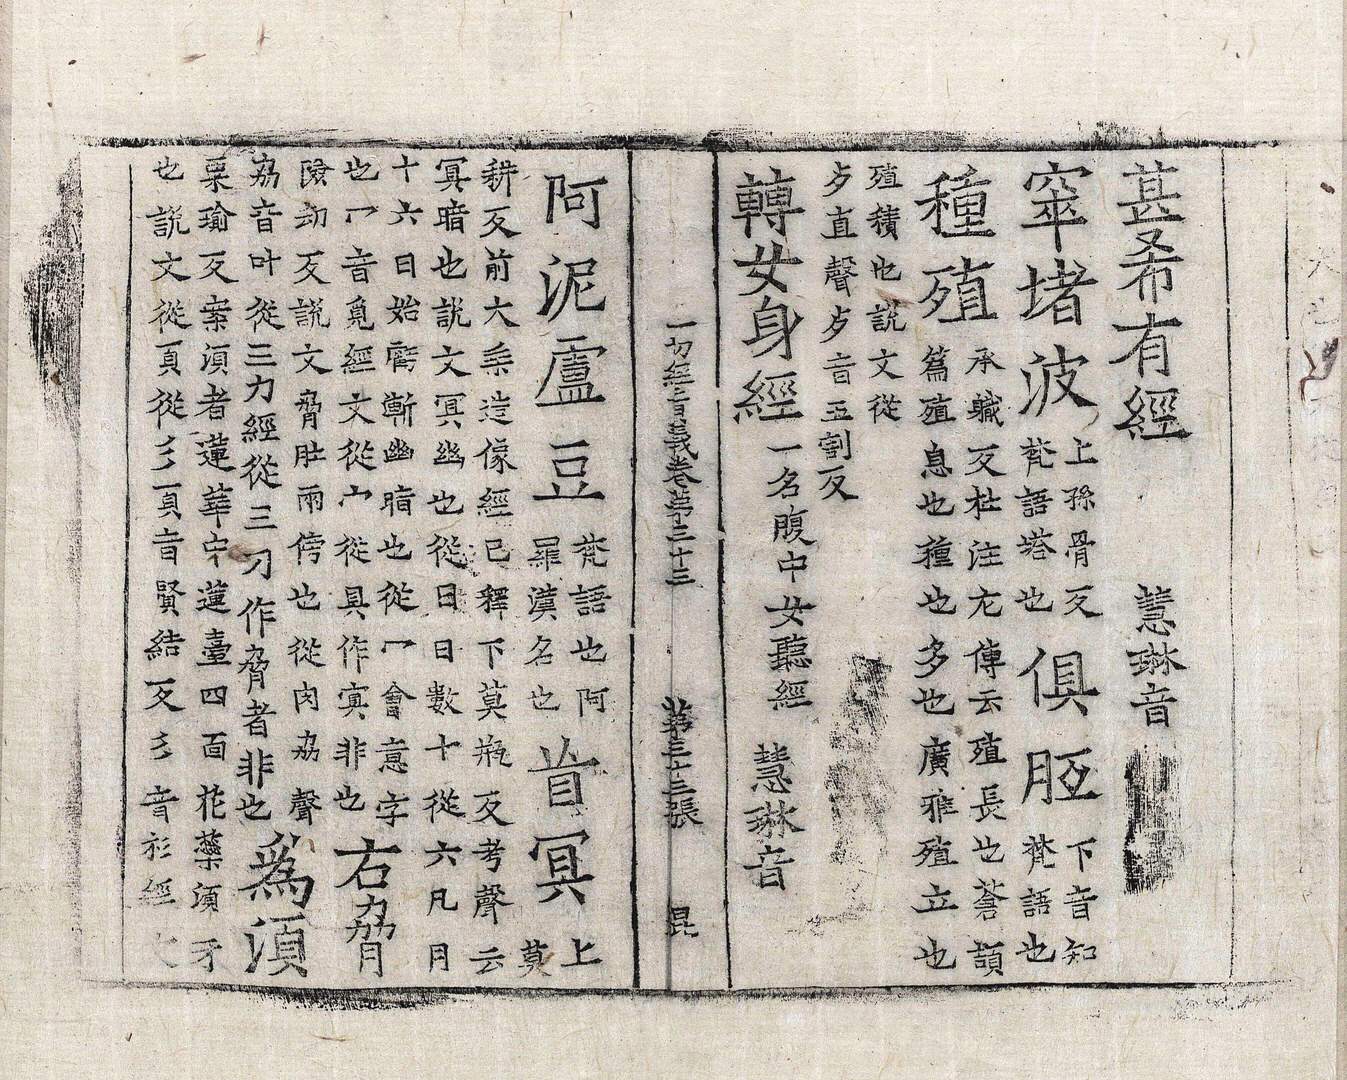 甚希有經 慧琳音
窣堵波 上孫骨反梵語塔也 俱胝 下音知梵語也
種殖 承軄反杜注左傳云殖長也蒼頡篇殖息也種也多也廣雅殖立也
殖積也說文從歺直聲歺音五割反
轉女身經 一名腹中女聽經 慧琳音
一切經音義卷第三十三 第三十三張 昆
阿泥盧豆 梵語也阿羅漢名也 首冥 上莫
耕反前大乘造像經已釋下莫瓶反考聲云
冥暗也說文冥幽也從日日數十從六凡月
十六日始虧漸幽暗也從冖會意字
也冖音覓經文從宀從具作寘非也 右脅
險劫反說文脅肚兩傍也從肉劦聲
劦音叶從三力經從三刀作脅者非也 為須
粟瑜反案須者蓮華中蓮臺四面花蘂須牙
也說文從頁從彡頁音賢結反彡音衫經文